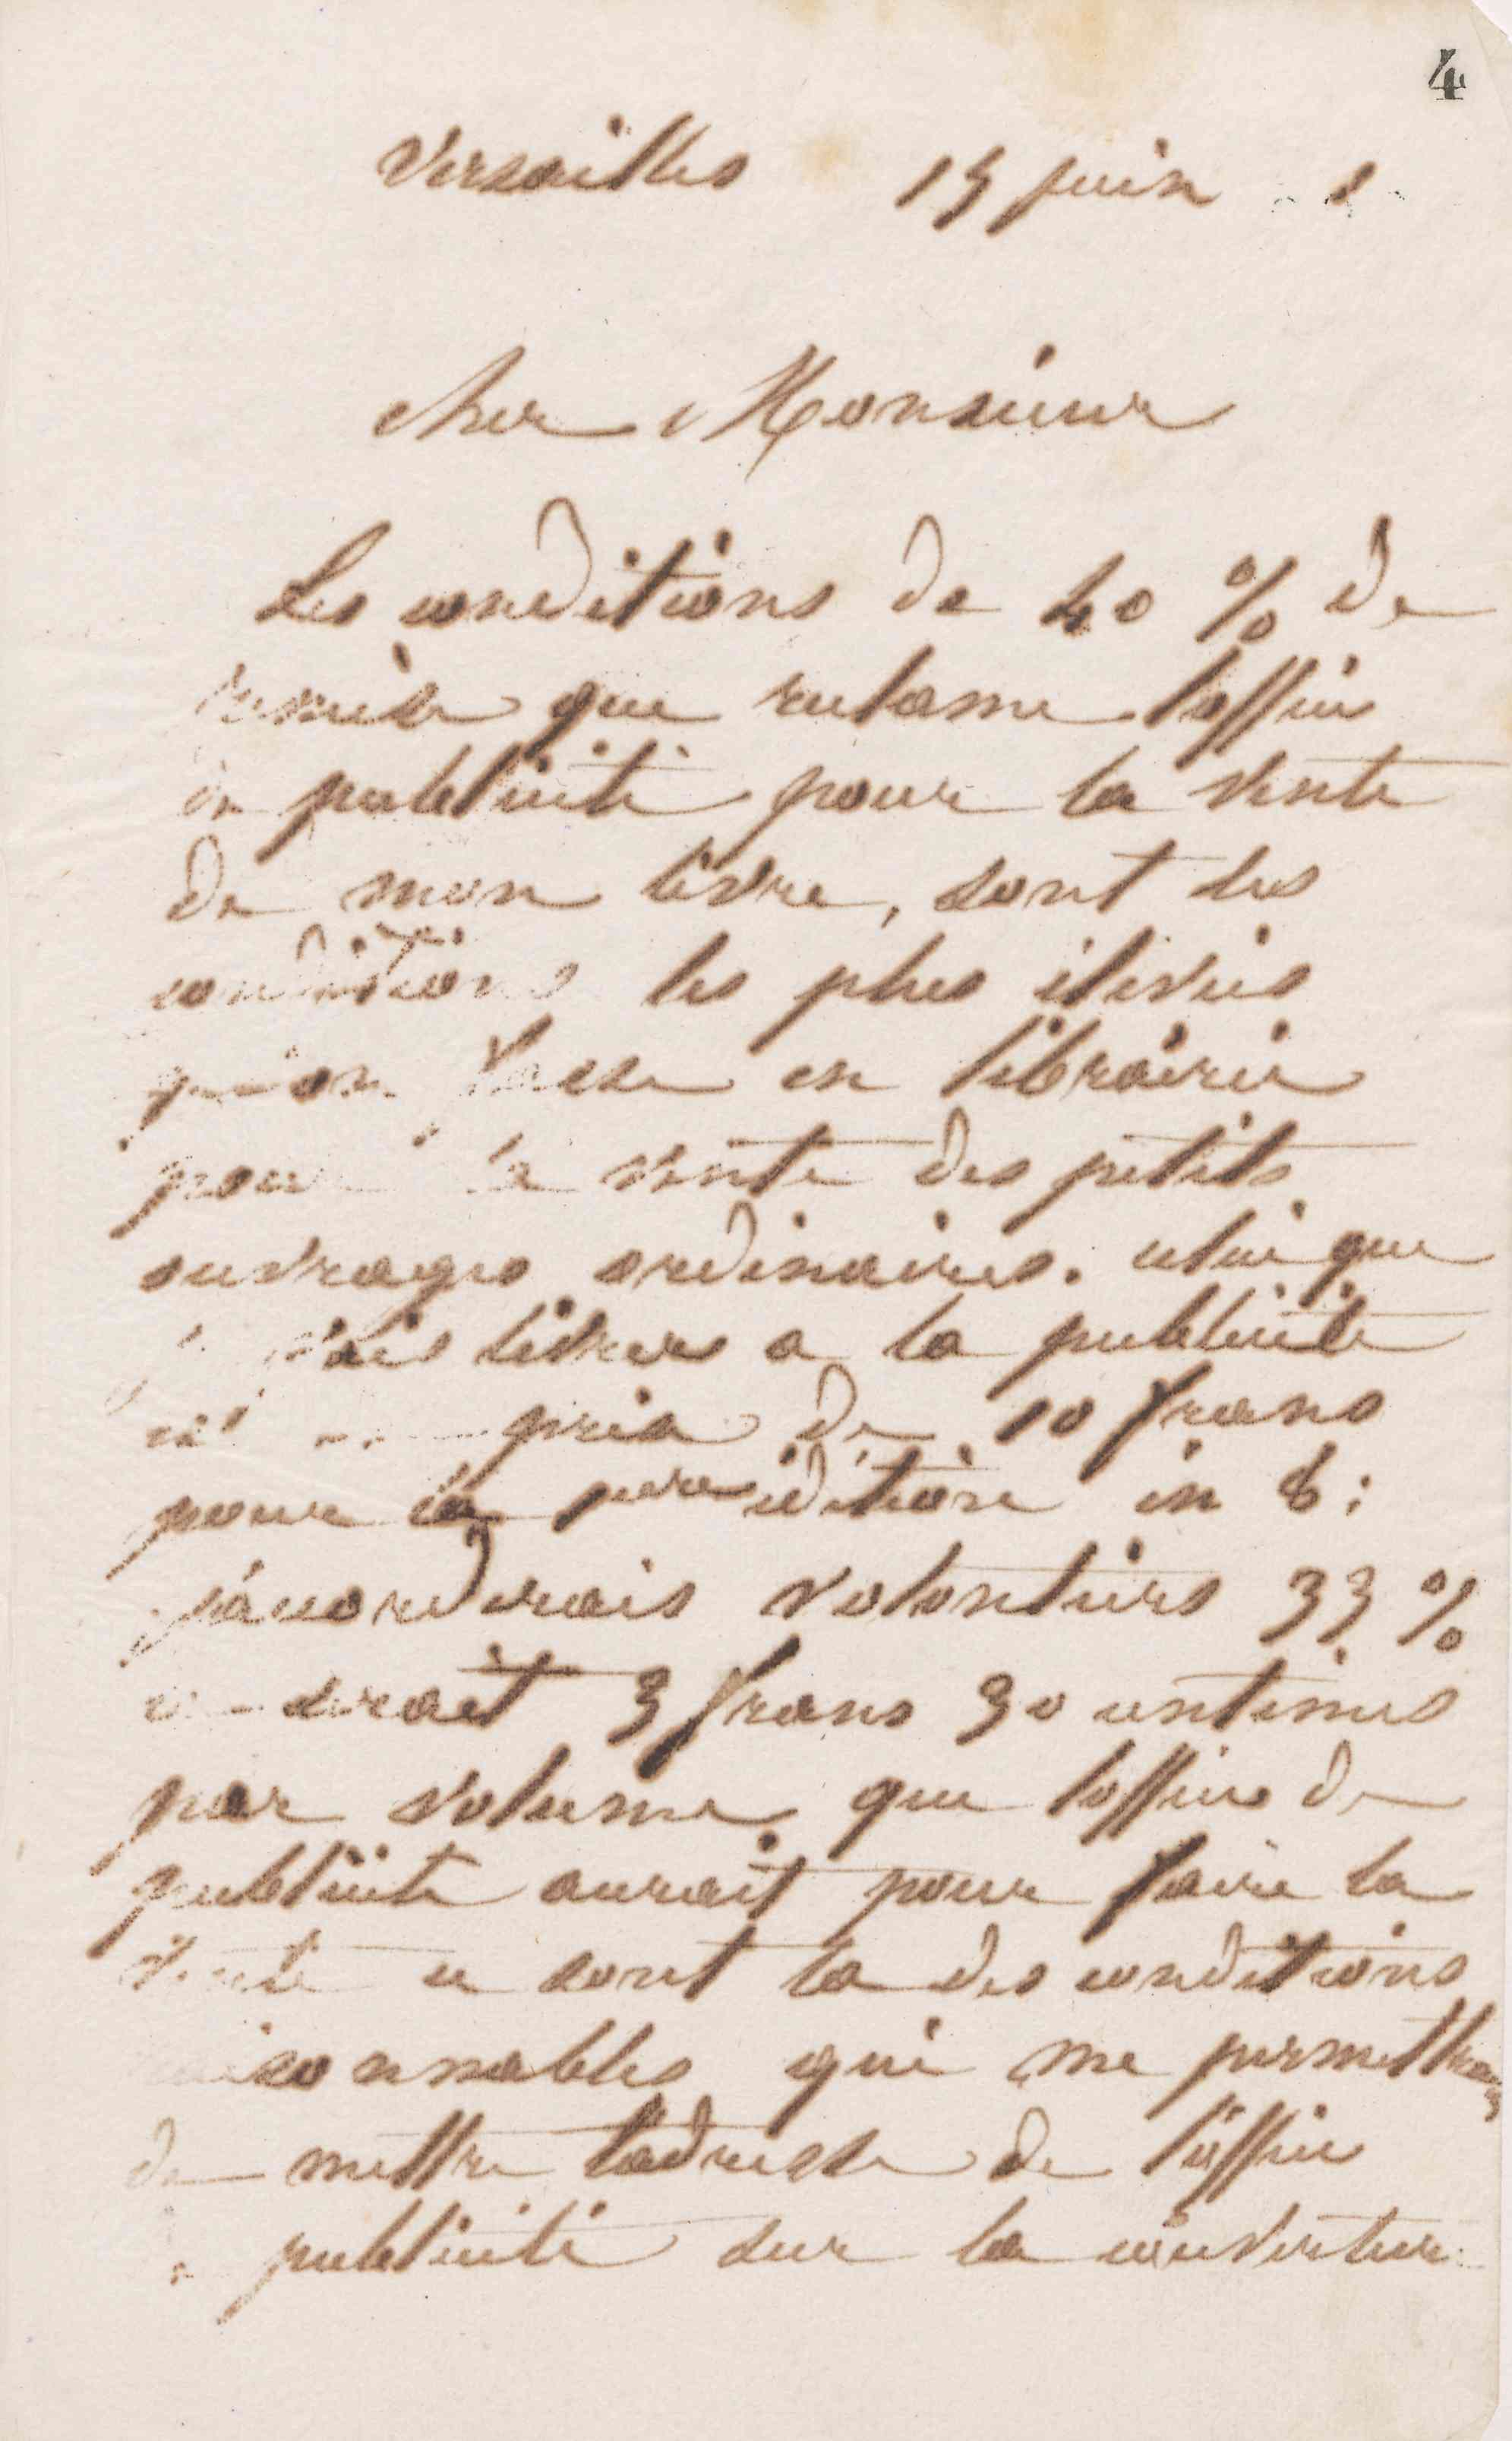 4
Versailles 15 juin
cher Monsieur
Les conditions de 40 % de
remise que reclame loffice
de publicité pour la vente
de mon livre, sont les
conditions les plus élevées
qu'on fasse en librairie
pour la vente des petits
ouvrages ordinaires. celui que
je vais livrer a la publicité
est prix de 10 francs
pour la 1ere édition in 8 ;
j'accorderais volontiers 33 %
ce serait 3 francs 30 centimes
par volume que loffice de
publicité aurait pour faire la
vente ce sont la des conditions
raisonnables qui me permettraient
de mettre ladresse de l'office
de publicité sur la couverture